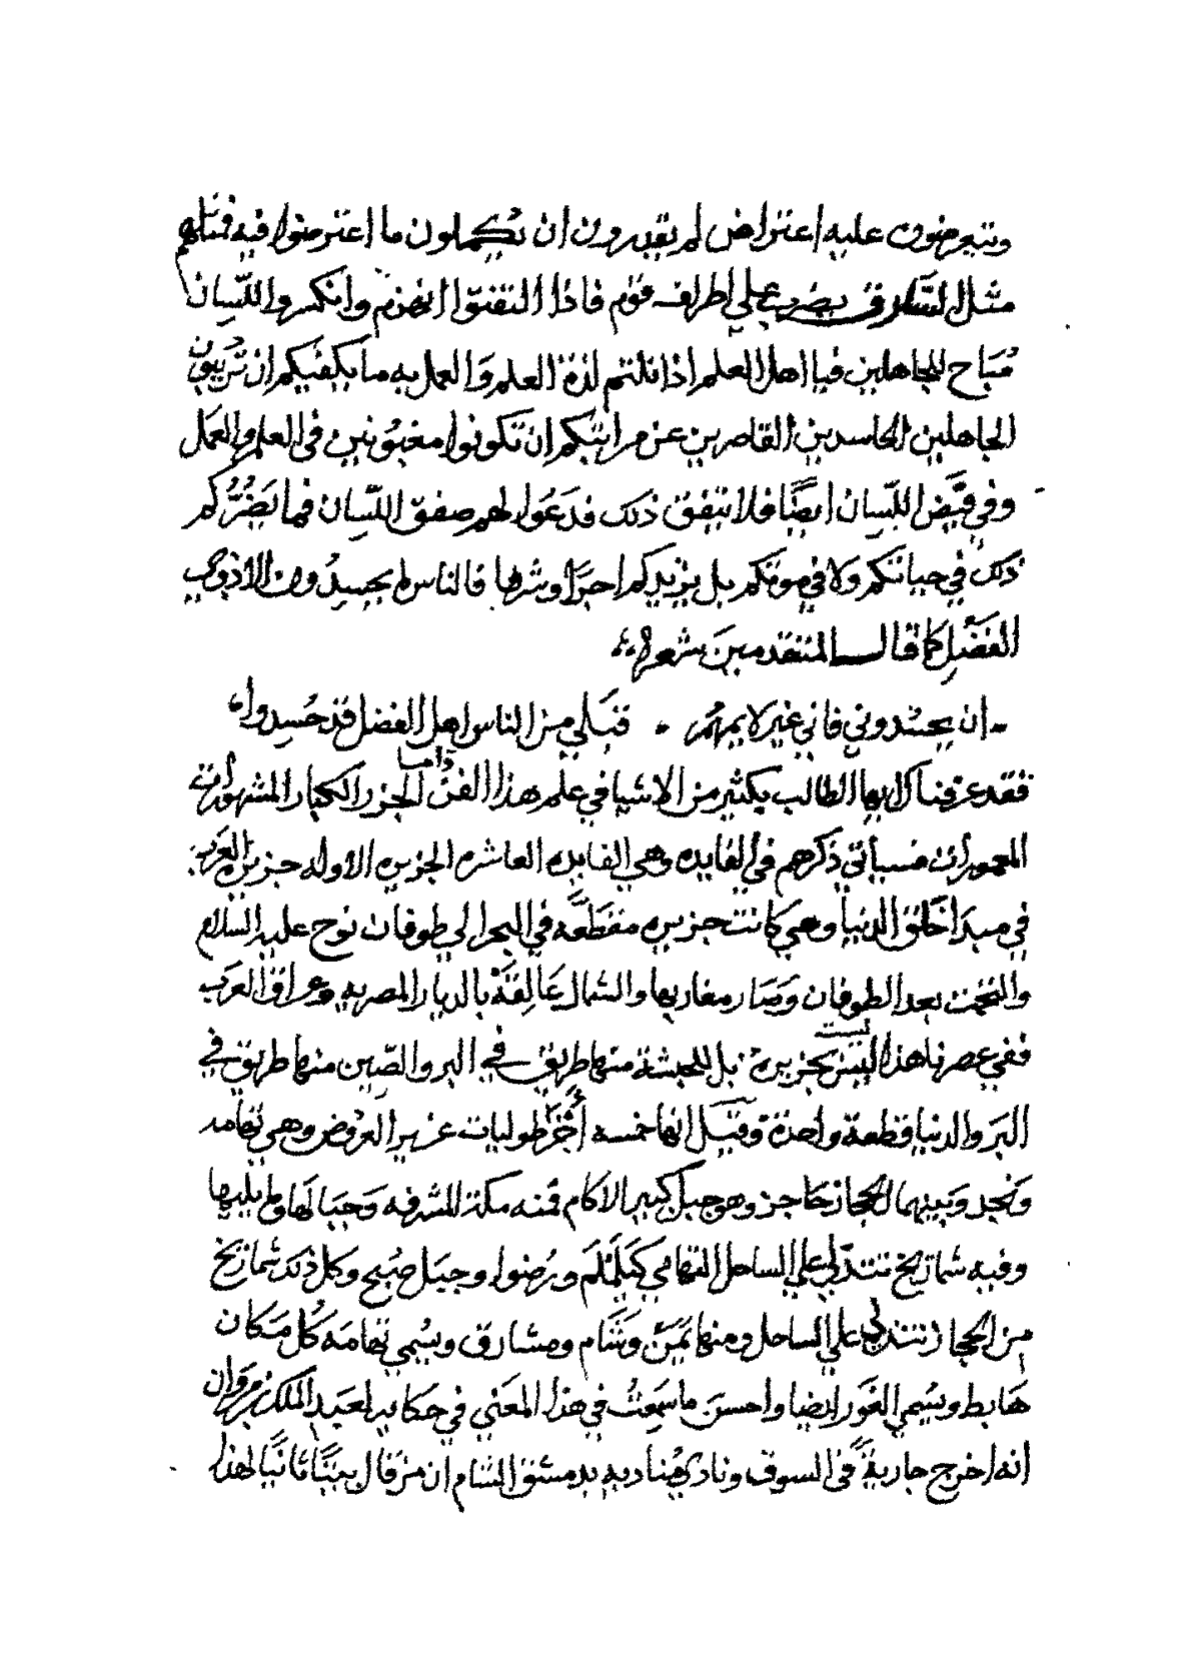 ويتعرضون عليه اعتراض لم يقدرون ان يكملون ما اعترضوا فيه فمثلهم
مثل السارق يضرب علي اطراف قوم فاذا التفتوا انهزم وانكسر واللسان
مُبَاح للجاهلين فيا اهل العلم اذا نلتم لذة العلم وَالعمل به ما يكفيكم ان تريدون
الجاهلين الحاسدين القاصرين عن مراتبكم ان تكونوا مغبُونين في العلم والعَمل
وفي قبَض اللّسان ايضًا فلا يتفق ذلك فدَعُوا لهم صفق اللّسان فما يَضُرُّكم
ذلك في حياتكم ولا في موتكم بل يزيدكم اجرًا وشرفا فالناس لم يحسِدُون الا ذوي
الفَضْلِ كما قال المتقدمين شعر
ان يحسُدوني فاني غير لايمهُم قبَلي من الناس اهل الفضل قد حُسِدوا
فقد عرفناك ايها الطالب بكثير من الاشيا في علم هذا الفن وَاما الجزر الكبار المشهورات
المعمورات فسيأتي ذكرهم في الفايده وهي الفايده العاشره الجزيره الأوله جزيرة العَرب
في مبدَا خَلق الدنيا وهي كانت جزيره منقطعَه في البحر الي طوفان نوح عليه السلام
والتحمت بعد الطوفان وَصَار مغاربها والشمال عَالِقَةً بالديار المصريه وعراق العرَب
ففي عصرنا هذا ليس ليست بجزيرة بل للحبشة منها طريق في البر والصّين منها طريق في
البَر والدنيا قطعة واحدة وقيل انها خمسه أجْزَا طوليات غير العرُوض وهي تهامه
وَنجد وَبينهما الحجاز حَاجز وهو جبل كبير الاكام فمنه مكة المشرفه وَجبَالهَا وما يليها
وفيه شماريخ تتدلي علي الساحل التهامي كيَلَمْلَم ورُضوا وجبَل صُبح وكل ذلك شماريخ
من الحجاز تتدلي علي الساحل ومنها يَمَن وَشَام ومشارق ويسُمي تهامَه كُل مَكان
هَابط ويسُمي الغَور ايضا واحسن ما سَمِعتُ في هذا المعَني في حكايه لعبَد الملك بن مروَان
انه اخرج جاريةً في السوق ونادي مُناديه بدمشق الشام ان من قال بيتًا ثانيًا لهذا